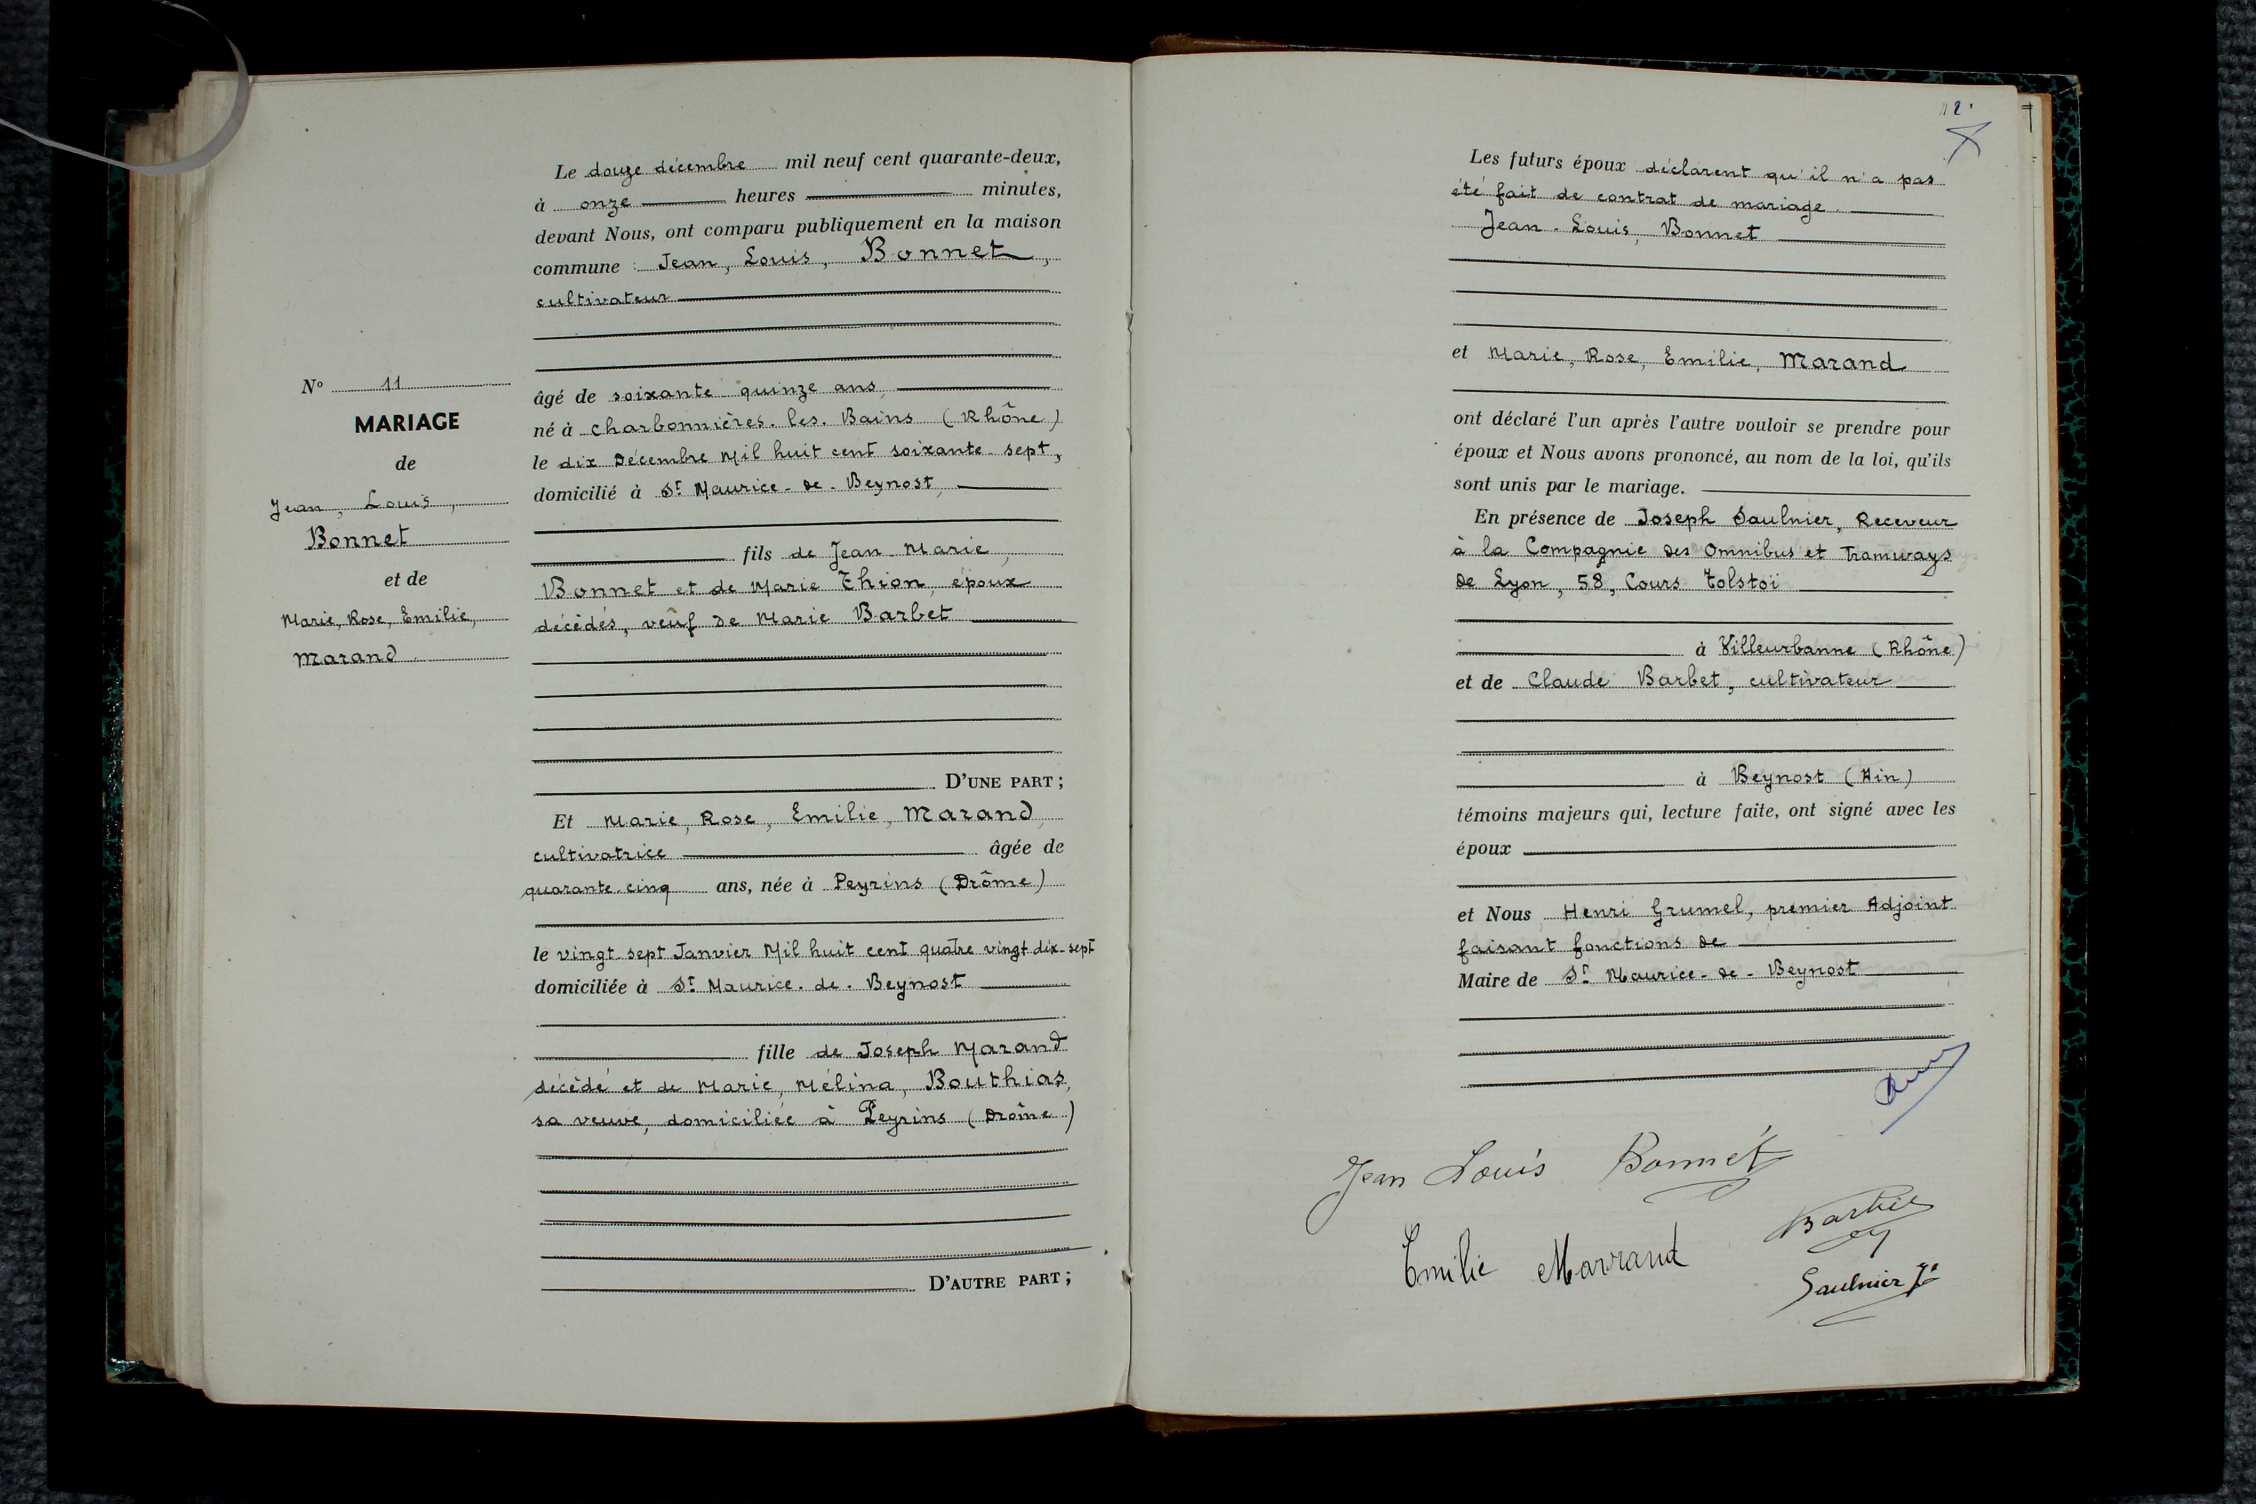 N° 11
MARIAGE
de
Jean, Louis,
Bonnet
et de
Marie, Rose, Emilie,
Marand
Le douze décembre mil neuf cent quarante-deux,
à onze heures minutes,
devant Nous, ont comparu publiquement en la maison
commune : Jean, Louis, Bonnet,
cultivateur
âgé de soixante quinze ans,
né à Charbonnières. les. Bains (Rhône)
le dix Décembre Mil huit cent soixante-sept,
domicilié à St Maurice-de-Beynost,
fils de Jean-Marie,
Bonnet et de Marie Thion, époux
décédés, veuf de Marie Barbet
D'UNE PART ;
Et Marie, Rose, Emilie, Marand,
cultivatrice âgée de
quarante-cinq ans, née à Peyrins (Drôme)
le vingt-sept Janvier Mil huit cent quatre vingt dix-sept
domiciliée à St Maurice.de.Beynost
fille de Joseph Marand
décédé et de Marie, Mélina, Bouthias,
sa veuve, domiciliée à Peyrins (Drôme)
D'AUTRE PART ;
Les futurs époux déclarent qu'il n'a pas
été fait de contrat de mariage.
Jean-Louis, Bonnet
et Marie, Rose, Emilie, Marand
ont déclaré l'un après l'autre vouloir se prendre pour
époux et Nous avons prononcé, au nom de la loi, qu'ils
sont unis par le mariage.
En présence de Joseph Saulnier, Receveur
à la Compagnie des Omnibus et Tramways
de Lyon, 58, Cours Tolstoï
à Villeurbanne (Rhône)
et de Claude Barbet, cultivateur
à Beynost (Ain)
témoins majeurs qui, lecture faite, ont signé avec les
époux
et Nous Henri Grumel, premier Adjoint
faisant fonctions de
Maire de St Maurice-de-Beynost
Jean Louis Bonnet
Barbet
Emilie Marrand
Saulnier Jh